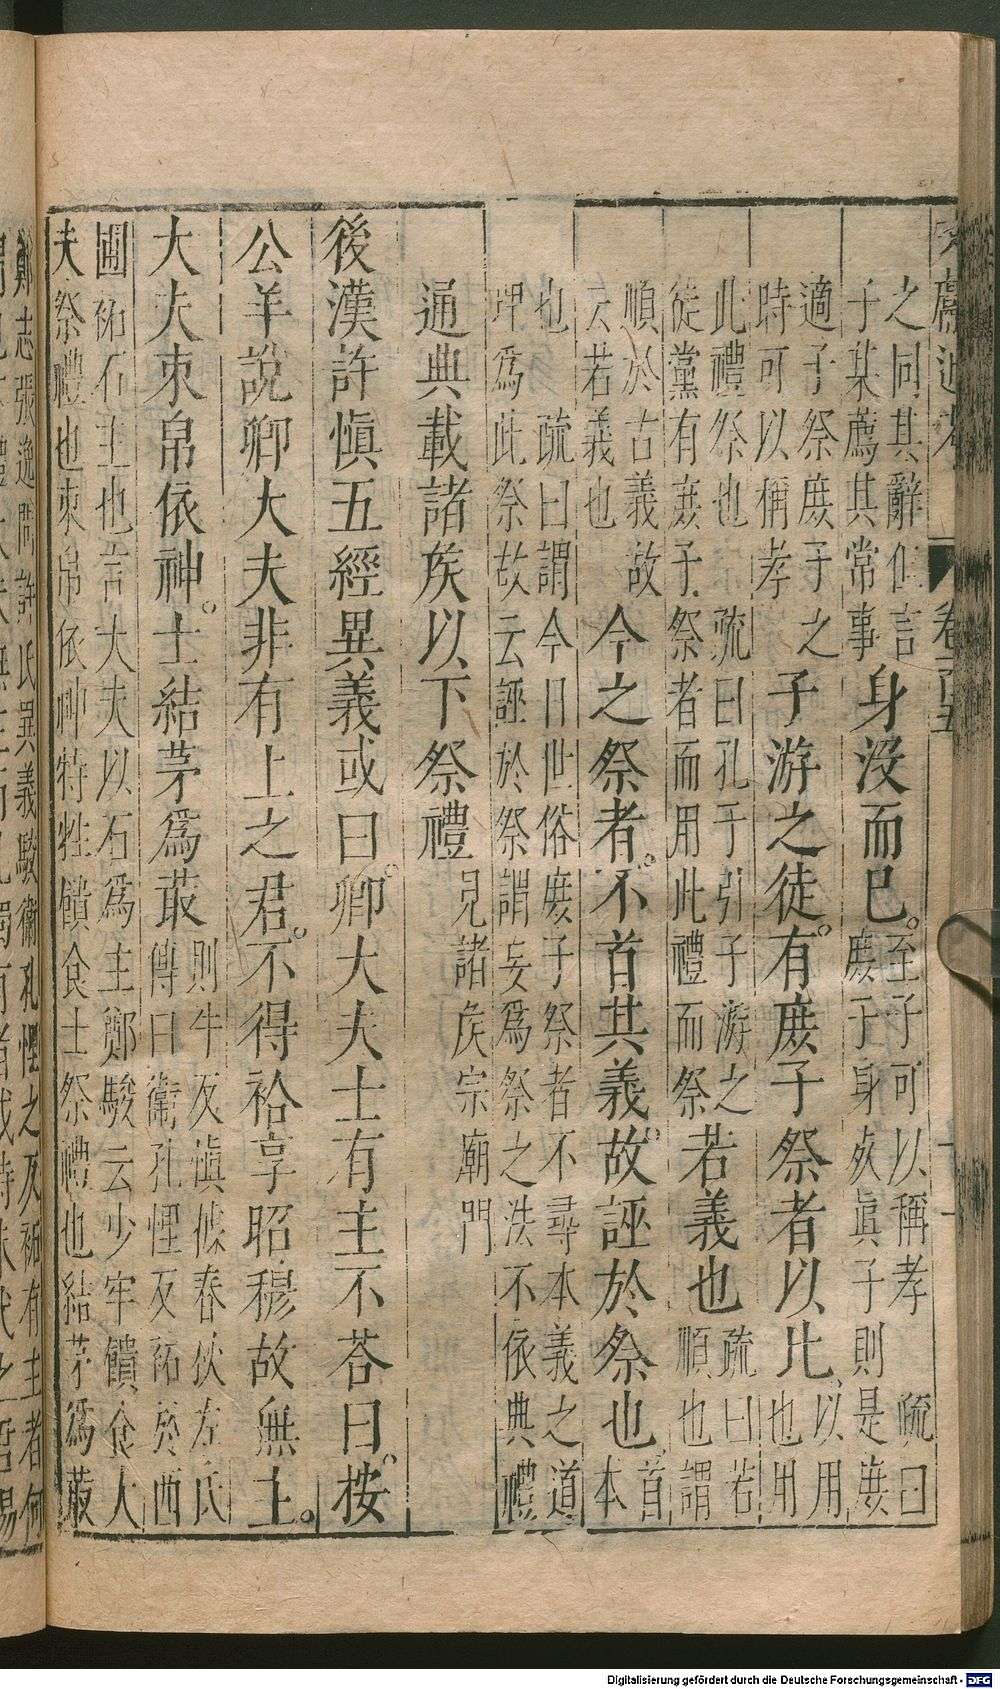 之同其辭但言
子某薦其常事
身沒而已。
至子可以稱孝
庶子身死眞子則是庶
疏曰
適子祭庶子之
時可以稱孝
子游之徒。有庶子祭者以此
以用
也用
此禮祭也疏曰孔子引子游之
徒黨有庶子祭者而用此禮而祭
若義也
疏曰若
順也謂
順於古義故
云若義也
今之祭者。不首其義。故誣於祭也
首
本
也疏曰謂今日世俗庶子祭者不尋本義之道
理爲此祭故云誣於祭謂妄爲祭之法不依典禮
通典載諸侯以下祭禮
見諸侯宗廟門
後漢許愼五經異義或曰。卿大夫士有主不荅曰。按
公羊說卿大夫非有土之君。不得祫享昭穆故無主。
大夫束帛依神。士結茅爲菆
則牛反愼據春秋左氏
傳曰衛孔悝反祏於西
圃祏石主也言大夫以石爲主鄭駮云少牢饋食大
夫祭禮也束帛依神特牲饋食士祭禮也結茅爲菆
鄭志張逸問許氏異義駮衛孔悝之反祏有主者何
卷一百五
Digitalisierung gefördert durch die Deutsche Forschungsgemeinschaft - DFG